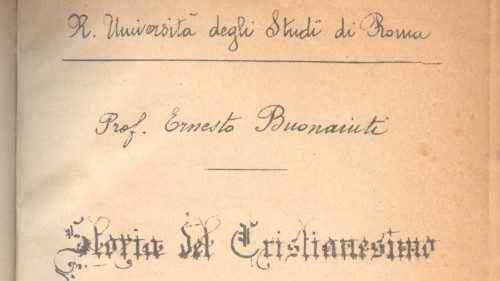 R. Università degli Studi di Roma
Prof. Ernesto Buonaiuti
Storia del Cristianesimo